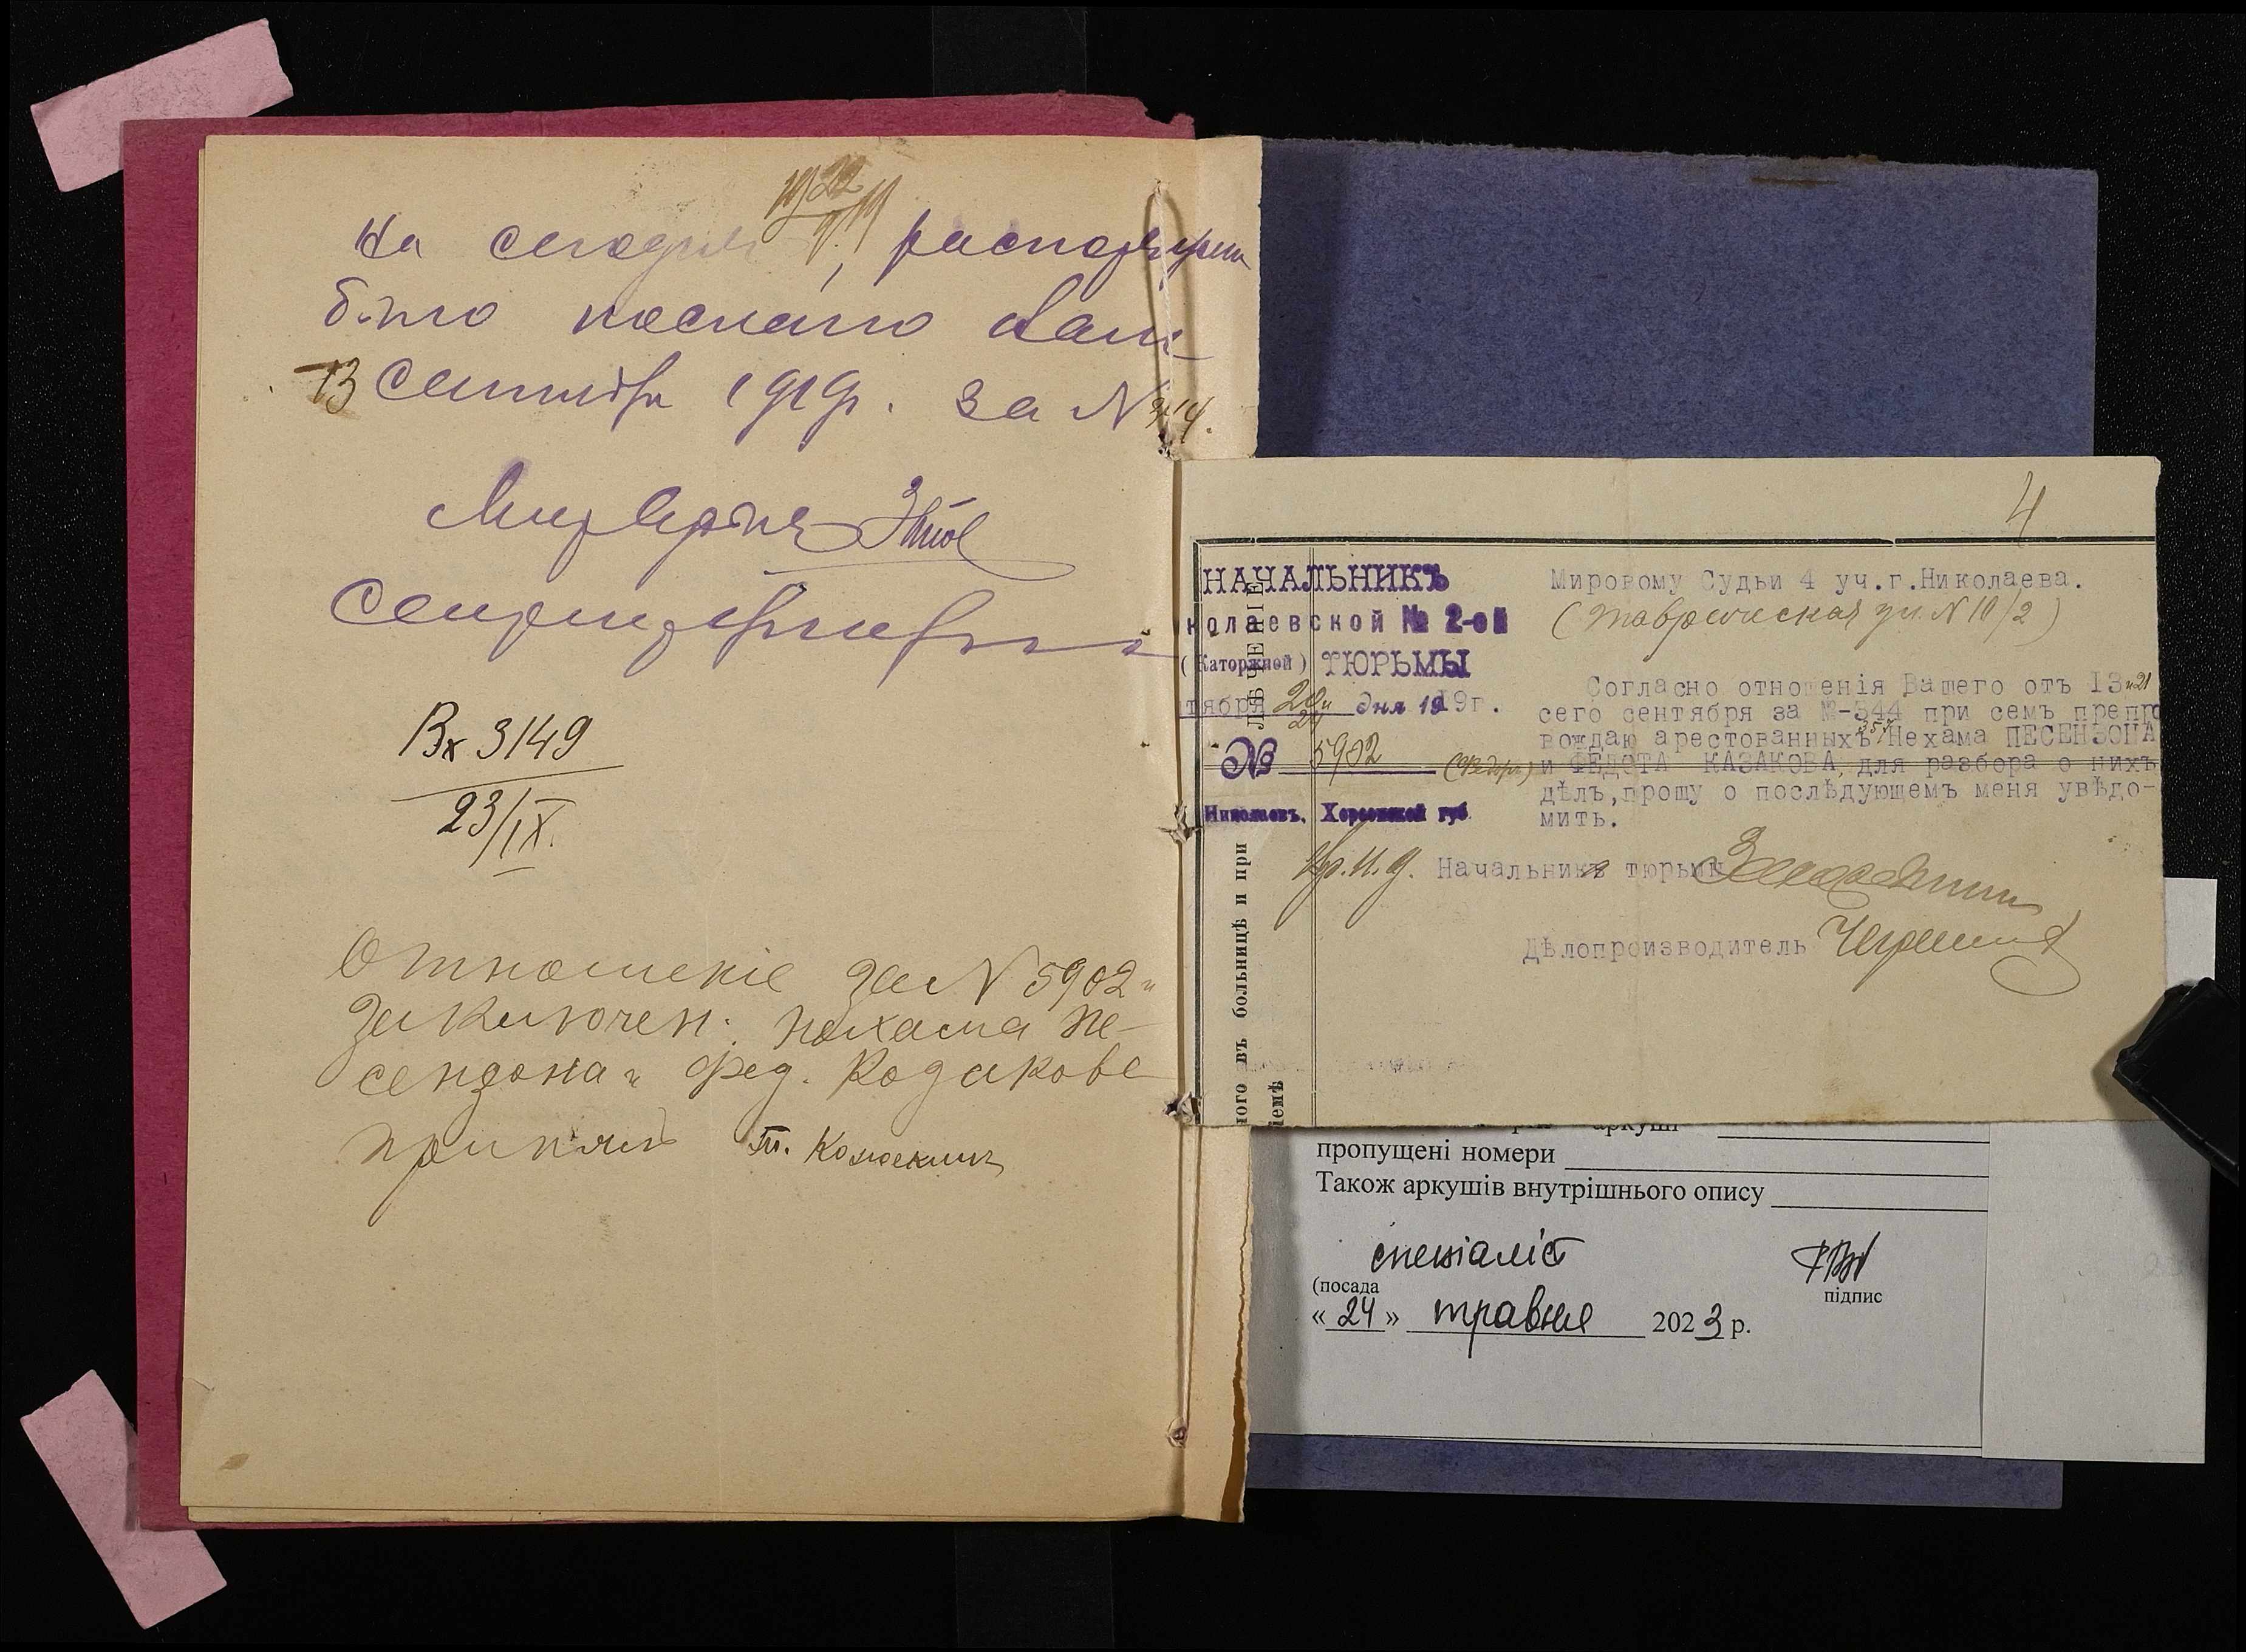 На сегодня 19 22/IX 19, распоряжен
было послано Вам
13 Сентября 1919г. за N 344.
Мир Судья
Секретарь
Вх 3149
23/IX.
Отношенiе за N 5902 и
заключен. Нехама Пе-
сензона и Фед. Козакова
принялъ Т.
4
НАЧАЛЬНИКЪ
колаевской № 2-ой
(Каторжной) ТЮРЬМЫ
тября 20 дня 1919г.
№ 5902
Николаевъ, Херсонской губ
ЛѢЧЕНIЕ
ного въ больницѣ и при
iемѣ
Мировому Судьи 4 уч.г.Николаева.
(Таврическая ул. N 10/2)
Согласно отношенiя Вашего отъ I3 и 21
сего сентября за №-344 при семъ препро
вождаю арестованныхъ Нехама ПЕСЕНЗОНА
(Федора) и ФЕДОТА КАЗАКОВА, для разбора о нихъ
дѣлъ,прошу о послѣдующемъ меня увѣдо-
мить.
Вр.и.д. Начальника тюрьмы
Дѣлопроизводитель
пропущені номери
Також аркушів внутрішнього опису
спеціаліст
(посада
підпис
« 24 » травня 2023 р.